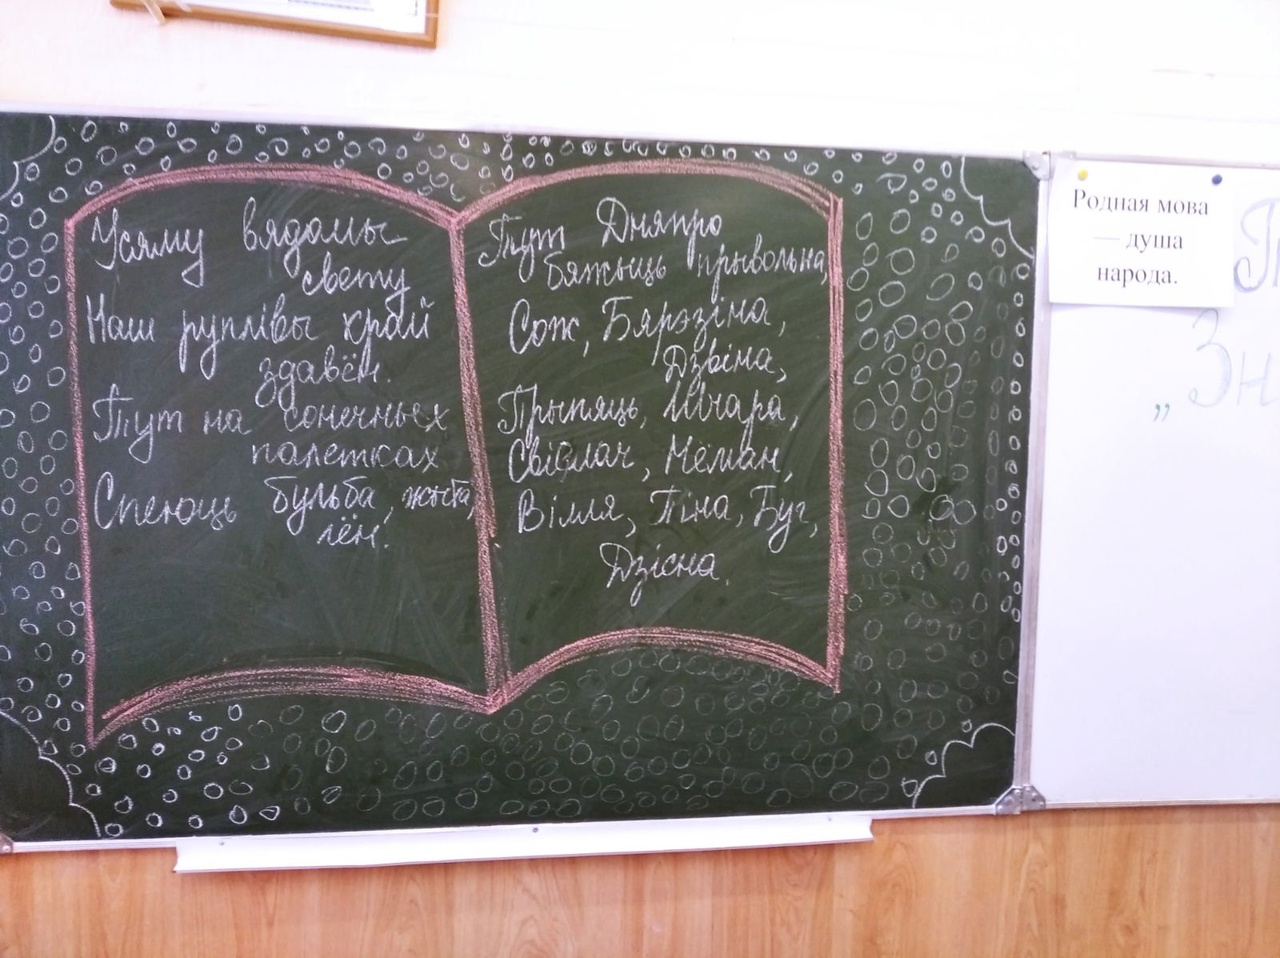 Усяму вядомы
свету
Наш руплівы край
здавён.
Тут на сонечных
палетках
Спеюць бульба, жыта,
лён.
Тут Дняпро
бяжыць прывольна,
Сож, Бярэзіна,
Дзвіна,
Прыпяць, Шчара,
Свіслач, Нёман,
Вілля, Піна, Буг,
Дзісна.
Родная мова
— душа
народа.
„ Зн